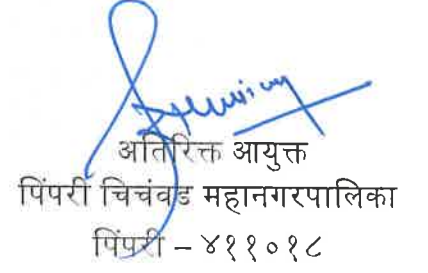 अतिरिक्त आयुक्त
पिंपरी चिचंवड महानगरपालिका
पिंपरी – ४११०१८